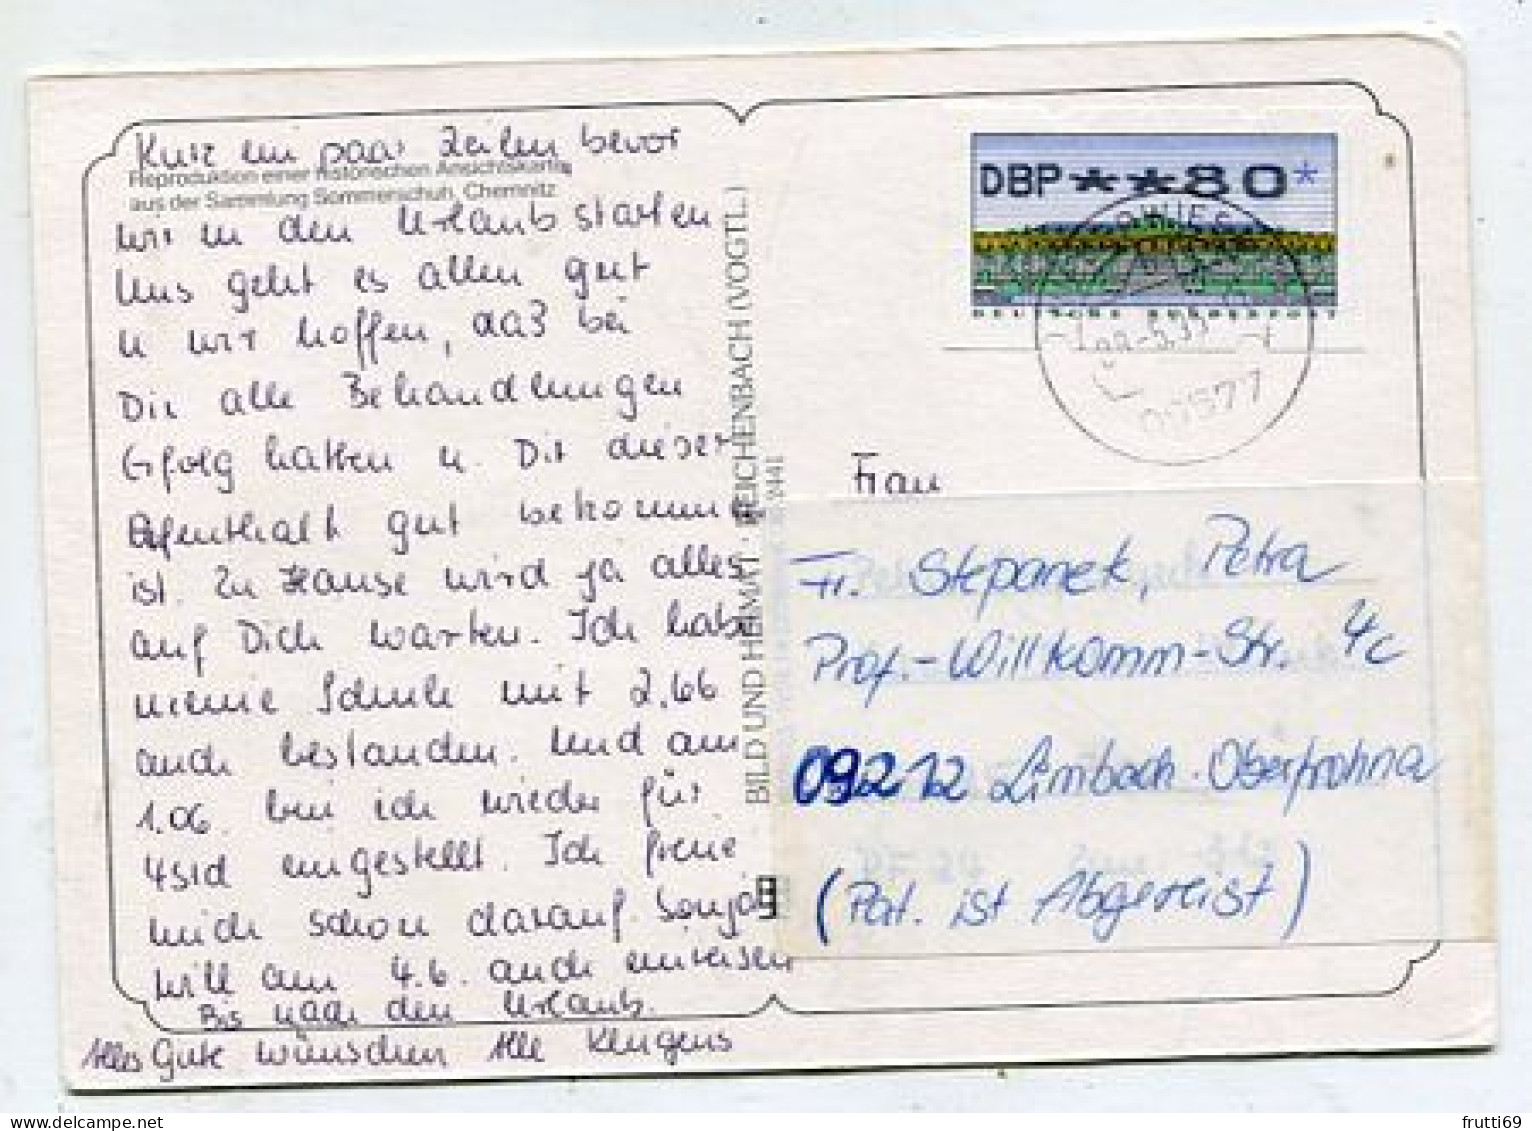 Kurz ein paar Zeilen bevor
Reproduktion einer historischen Ansichtskarte
aus der Sammlung Sommerschuh, Chemnitz
wir in den Urlaub starten
Uns geht es allen gut
u wir hoffen, daß bei
Dir alle Behandlungen
Erfolg hatten u. Dir dieser
Aufenthalt gut bekommen
ist. Zu Hause wird ja alles
auf Dich warten. Ich habe
meine Schule mit 2,66
auch bestanden. Und am
1.06. bin ich wieder für
4std eingestellt. Ich freue
mich schon darauf. Sonja
will am 4.6. auch einreisen
Bis nach den Urlaub.
Alles Gute wünschen Alle Klugens
BILD UND HEIMAT · REICHENBACH (VOGTL.)
DBP**80*
DEUTSCHE BUNDESPOST
Frau
Fr. Stepanek, Petra
Prof.-Willkomm-Str. 4c
09212 Limbach-Oberfrohna
(Pat. ist Abgereist)
frutti69